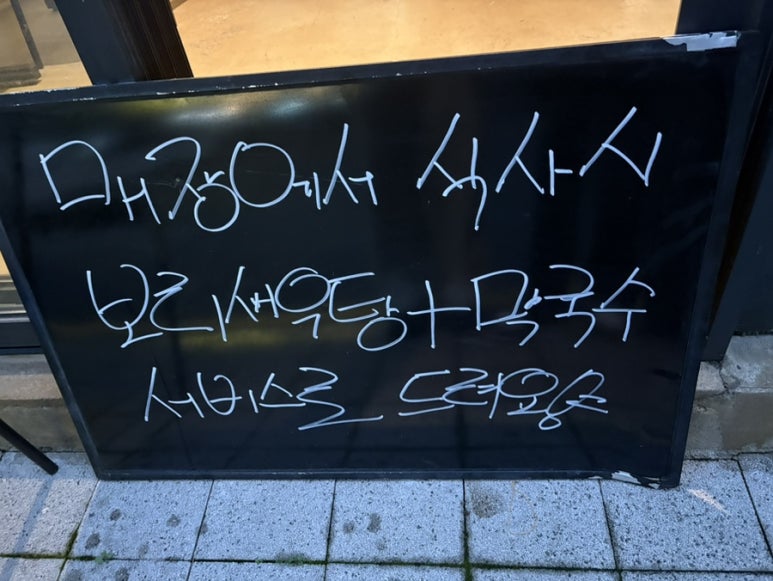 매장에서 식사시
보리새우탕+막국수
서비스로 드려요